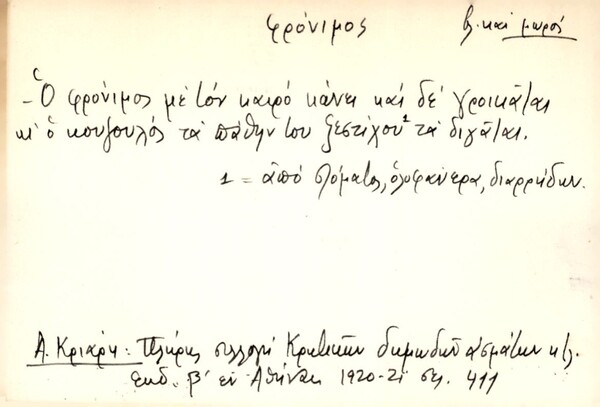 φρόνιμος
βλ. και μωρός
- Ὁ φρόνιμος μὲ τὸν καιρὸ κάνει καὶ δὲ γροικᾶται
κι ὁ κουζουλὸς τὰ πάθη του ξεστίχου¹ τὰ διγᾶται.
1 = ἀπὸ στόματος, ὁλοφάνερα, διαρρήδην.
Α. Κριάρη: Πλήρης συλλογὴ Κρητικῶν δημωδῶν ἀσμάτων κτλ.
Ἐκδ. β' ἐν Ἀθήναις 1920-21 σελ. 411